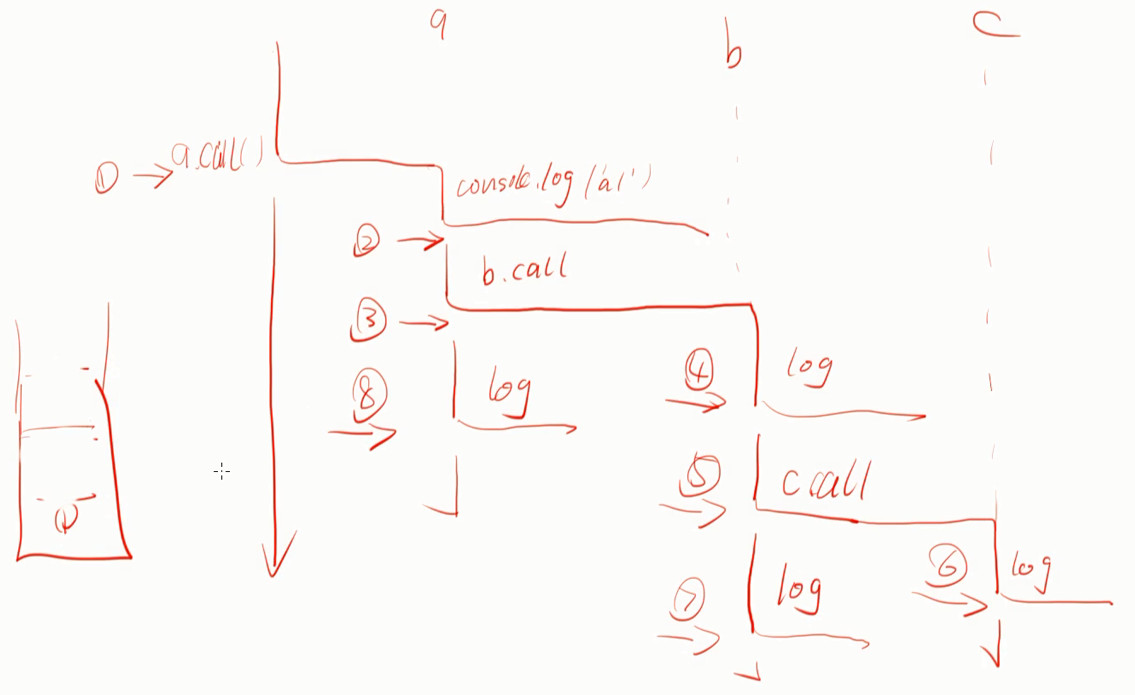 a
b
c
① → a.call()
console.log('a1')
② →
b.call
③ →
④ log
⑧ log
⑤ c.call
⑥ log
⑦ log